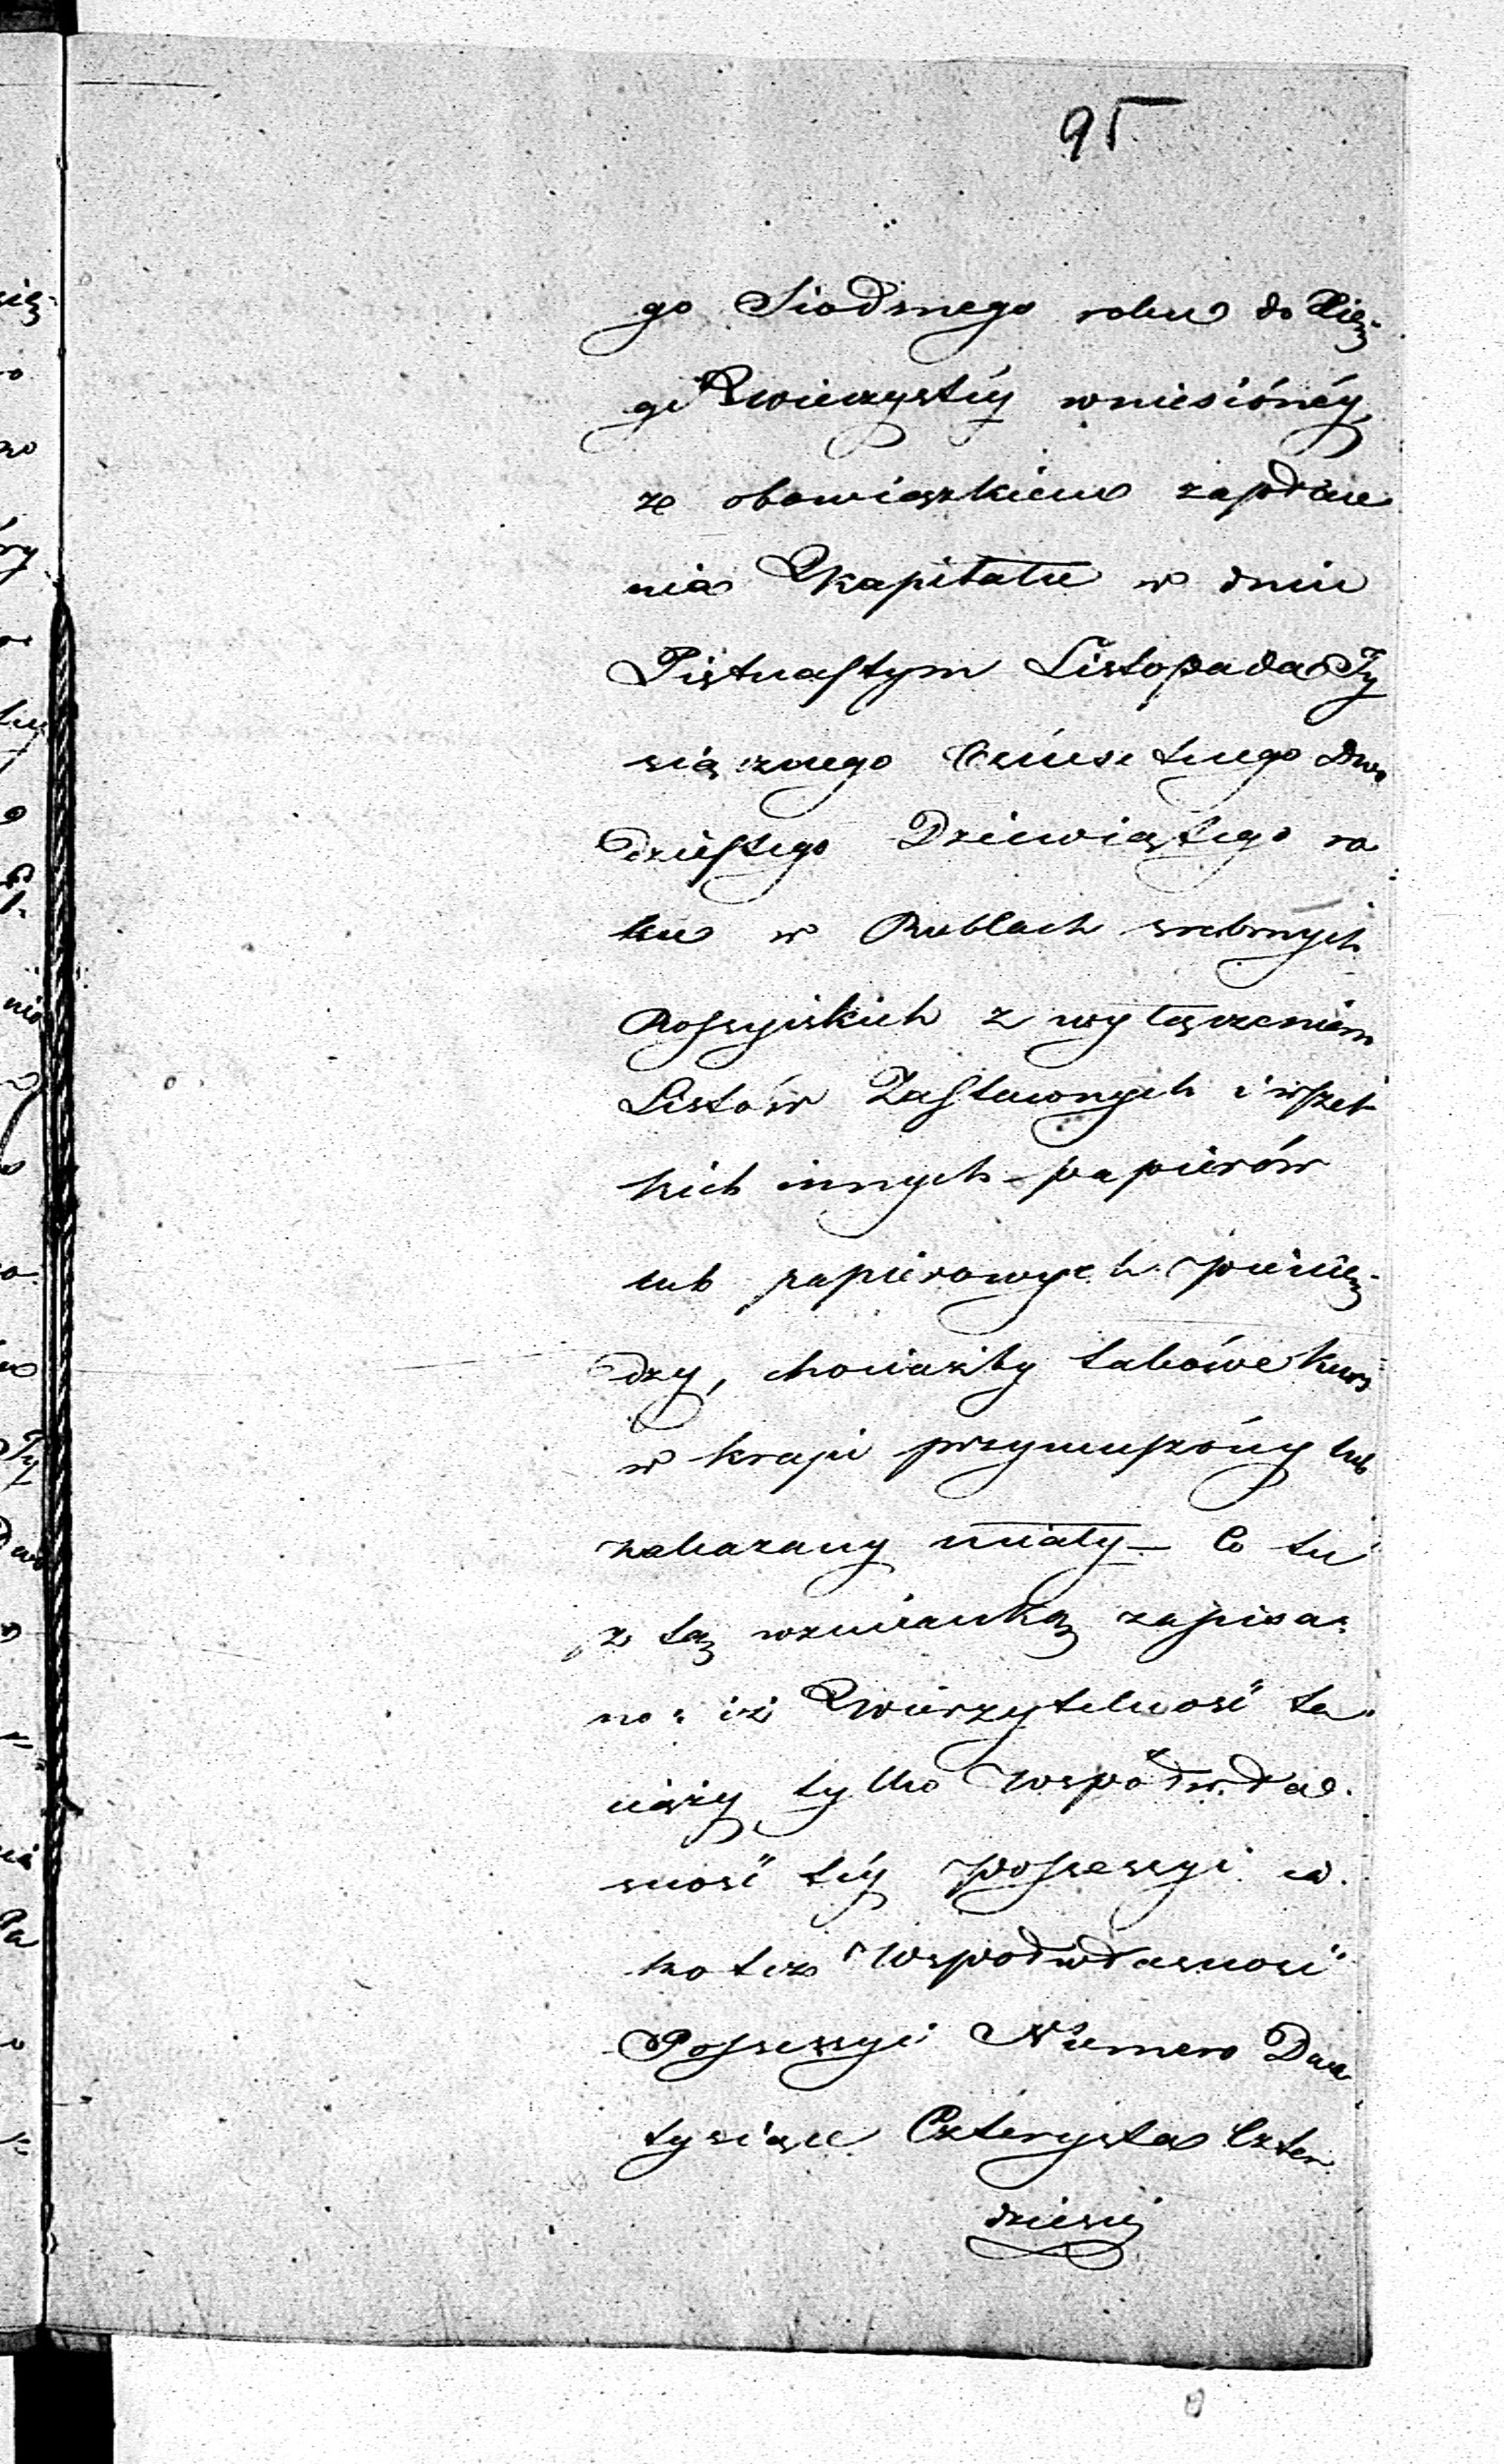 95
go Siodmego roku do Xię-
gi Wieczystéy wniesionéy,
z obowiązkiem zapłace
nia kapitału w dniu
Piętnastym Listopada Ty
siącznego Ośmsetnego dwu
dziestego Dziewiątego ro
ku w Rublach srebrnych
Rossyiskich z wyłączeniem
Listów Zastawnych i wszel
kich innych papierów
lub papierowych pienię-
dzy, chociażby takowe kurs
w kraju przymuszony lub
nakazany miały – Co tu
z tą wzmianką zapisa-
no: iż Wierzytelność ta
ciąży tylko współwła
sność téy Possessyi ia
ko też współwłasność
Possessyi Numero Dwa
tysiące Czterysta Czter
dzieści